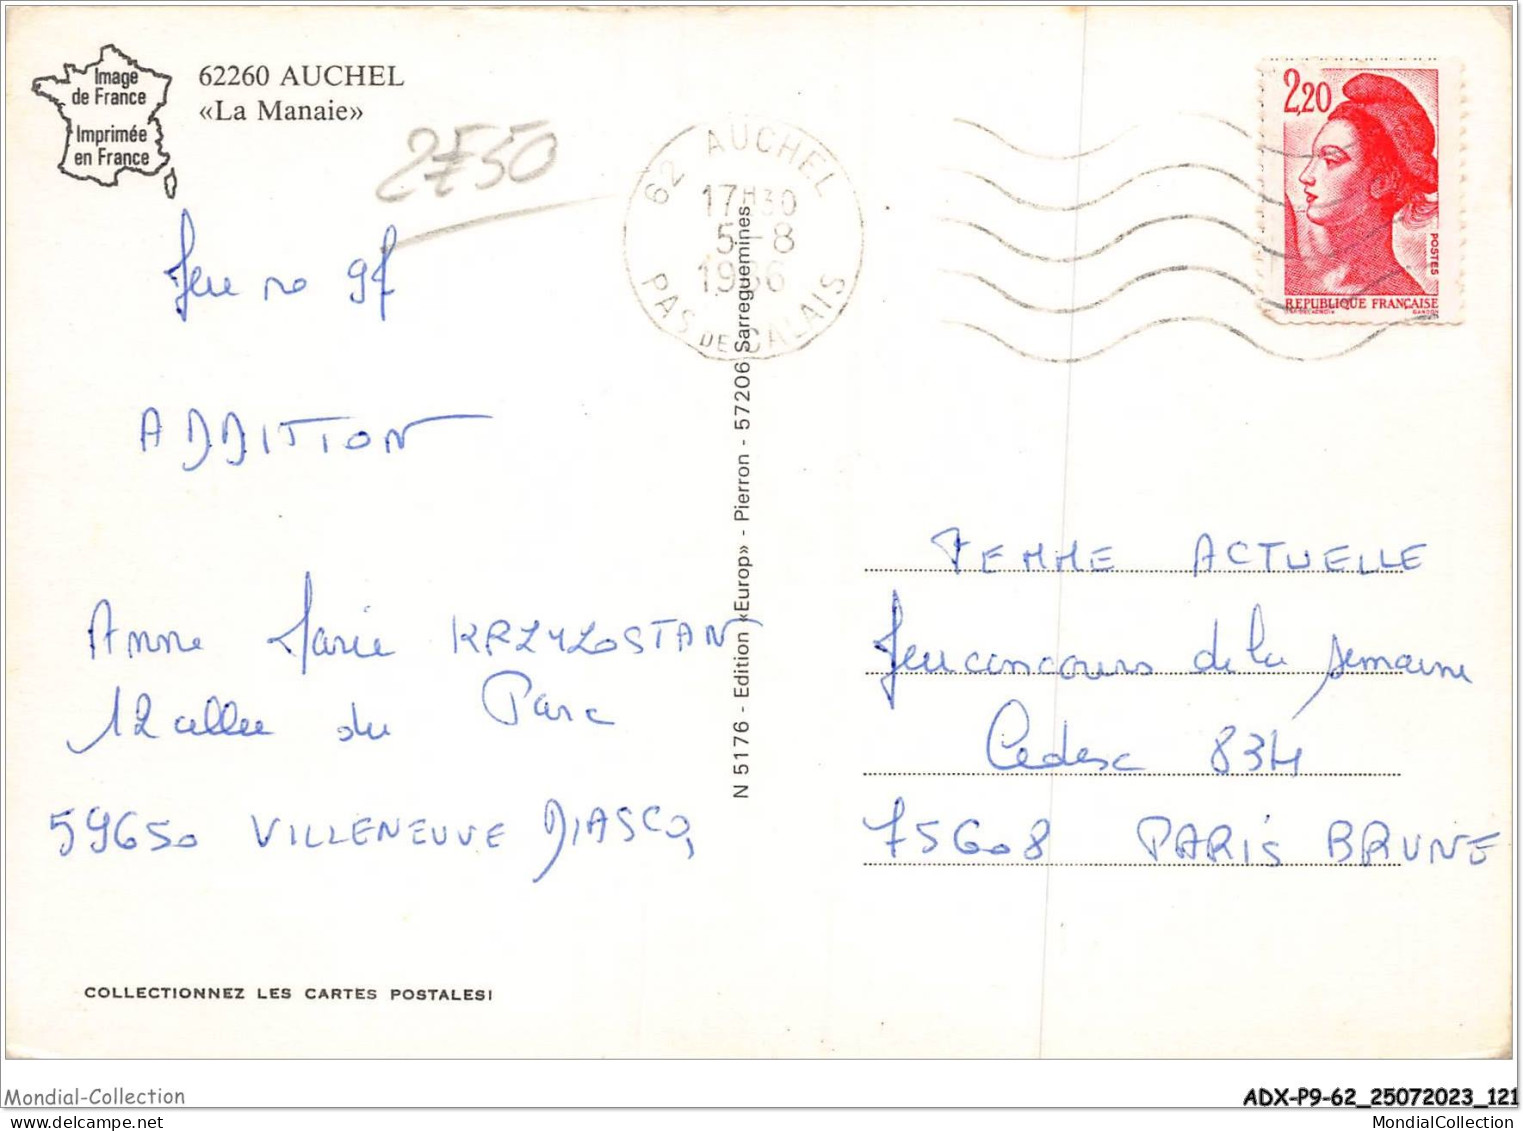 Image
de France
Imprimée
en France
62260 AUCHEL
«La Manaie»
2F50
62 AUCHEL
17H30
5-8
1986
PAS DE CALAIS
2,20
POSTES
REPUBLIQUE FRANÇAISE
GANDON
Jeu no 97
ADDITION
Anne Marie KRZYLOSTAN
12 allee du Parc
59650 VILLENEUVE D'ASCQ
N 5176 - Edition «Europ» - Pierron - 57206 Sarreguemines
FEMME ACTUELLE
Jeu concours de la semaine
Cedex 834
75608 PARIS BRUNE
COLLECTIONNEZ LES CARTES POSTALES!
Mondial-Collection
ADX-P9-62_25072023_121
www.delcampe.net
MondialCollection